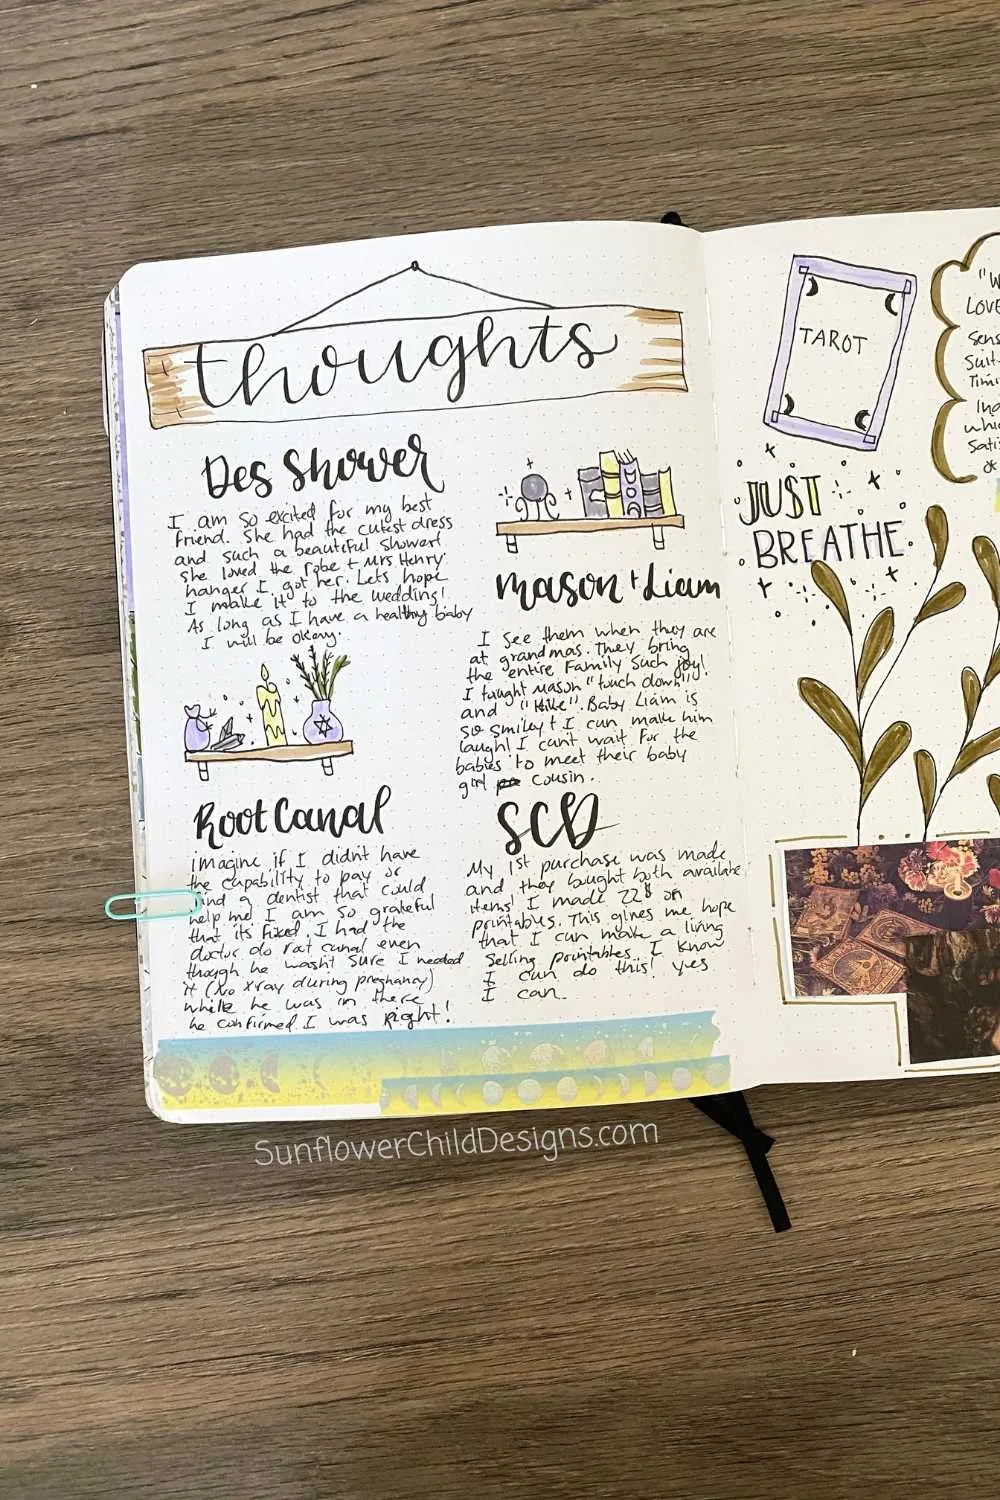 thoughts
Des Shower
I am so excited for my best
friend. She had the cutest dress
and such a beautiful shower!
She loved the robe + Mrs Henry
hanger I got her. Lets hope
I make it to the wedding!
As long as I have a healthy baby
I will be okay.
Root Canal
imagine if I didn't have
the capability to pay or
find a dentist that could
help me! I am so grateful
that its fixed. I had the
doctor do root canal even
though he wasn't sure I needed
it (no xray during pregnancy)
while he was in there
he confirmed I was right!
Mason + Liam
I see them when they are
at grandmas. They bring
the entire family such joy!
I taught Mason "touch down"
and "Hike". Baby Liam is
so smiley + I can make him
laugh! I can't wait for the
babies to meet their baby
girl cousin.
SCD
My 1st purchase was made
and they bought both available
items! I made 22$ on
printables. This gives me hope
that I can make a living
selling printables. I know
I can do this! yes
I can.
TAROT
JUST
BREATHE
"W
Love
Sens
Suit
Timi
whic
Satis
SunflowerChildDesigns.com